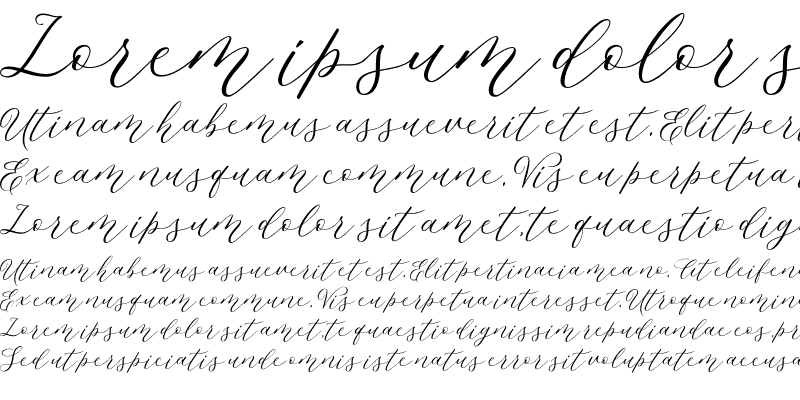 Lorem ipsum dolor s
Utinam habemus assueverit et est. Elit pert
Ex eam nusquam commune. Vis eu perpetua i
Lorem ipsum dolor sit amet, te quaestio dign
Utinam habemus assueverit et est. Elit pertinacia mea no. At eleifen
Ex eam nusquam commune. Vis eu perpetua interesset. Utroque nomina
Lorem ipsum dolor sit amet, te quaestio dignissim repudiandae eos, pr
Sed ut perspiciatis unde omnis iste natus error sit voluptatem accusa